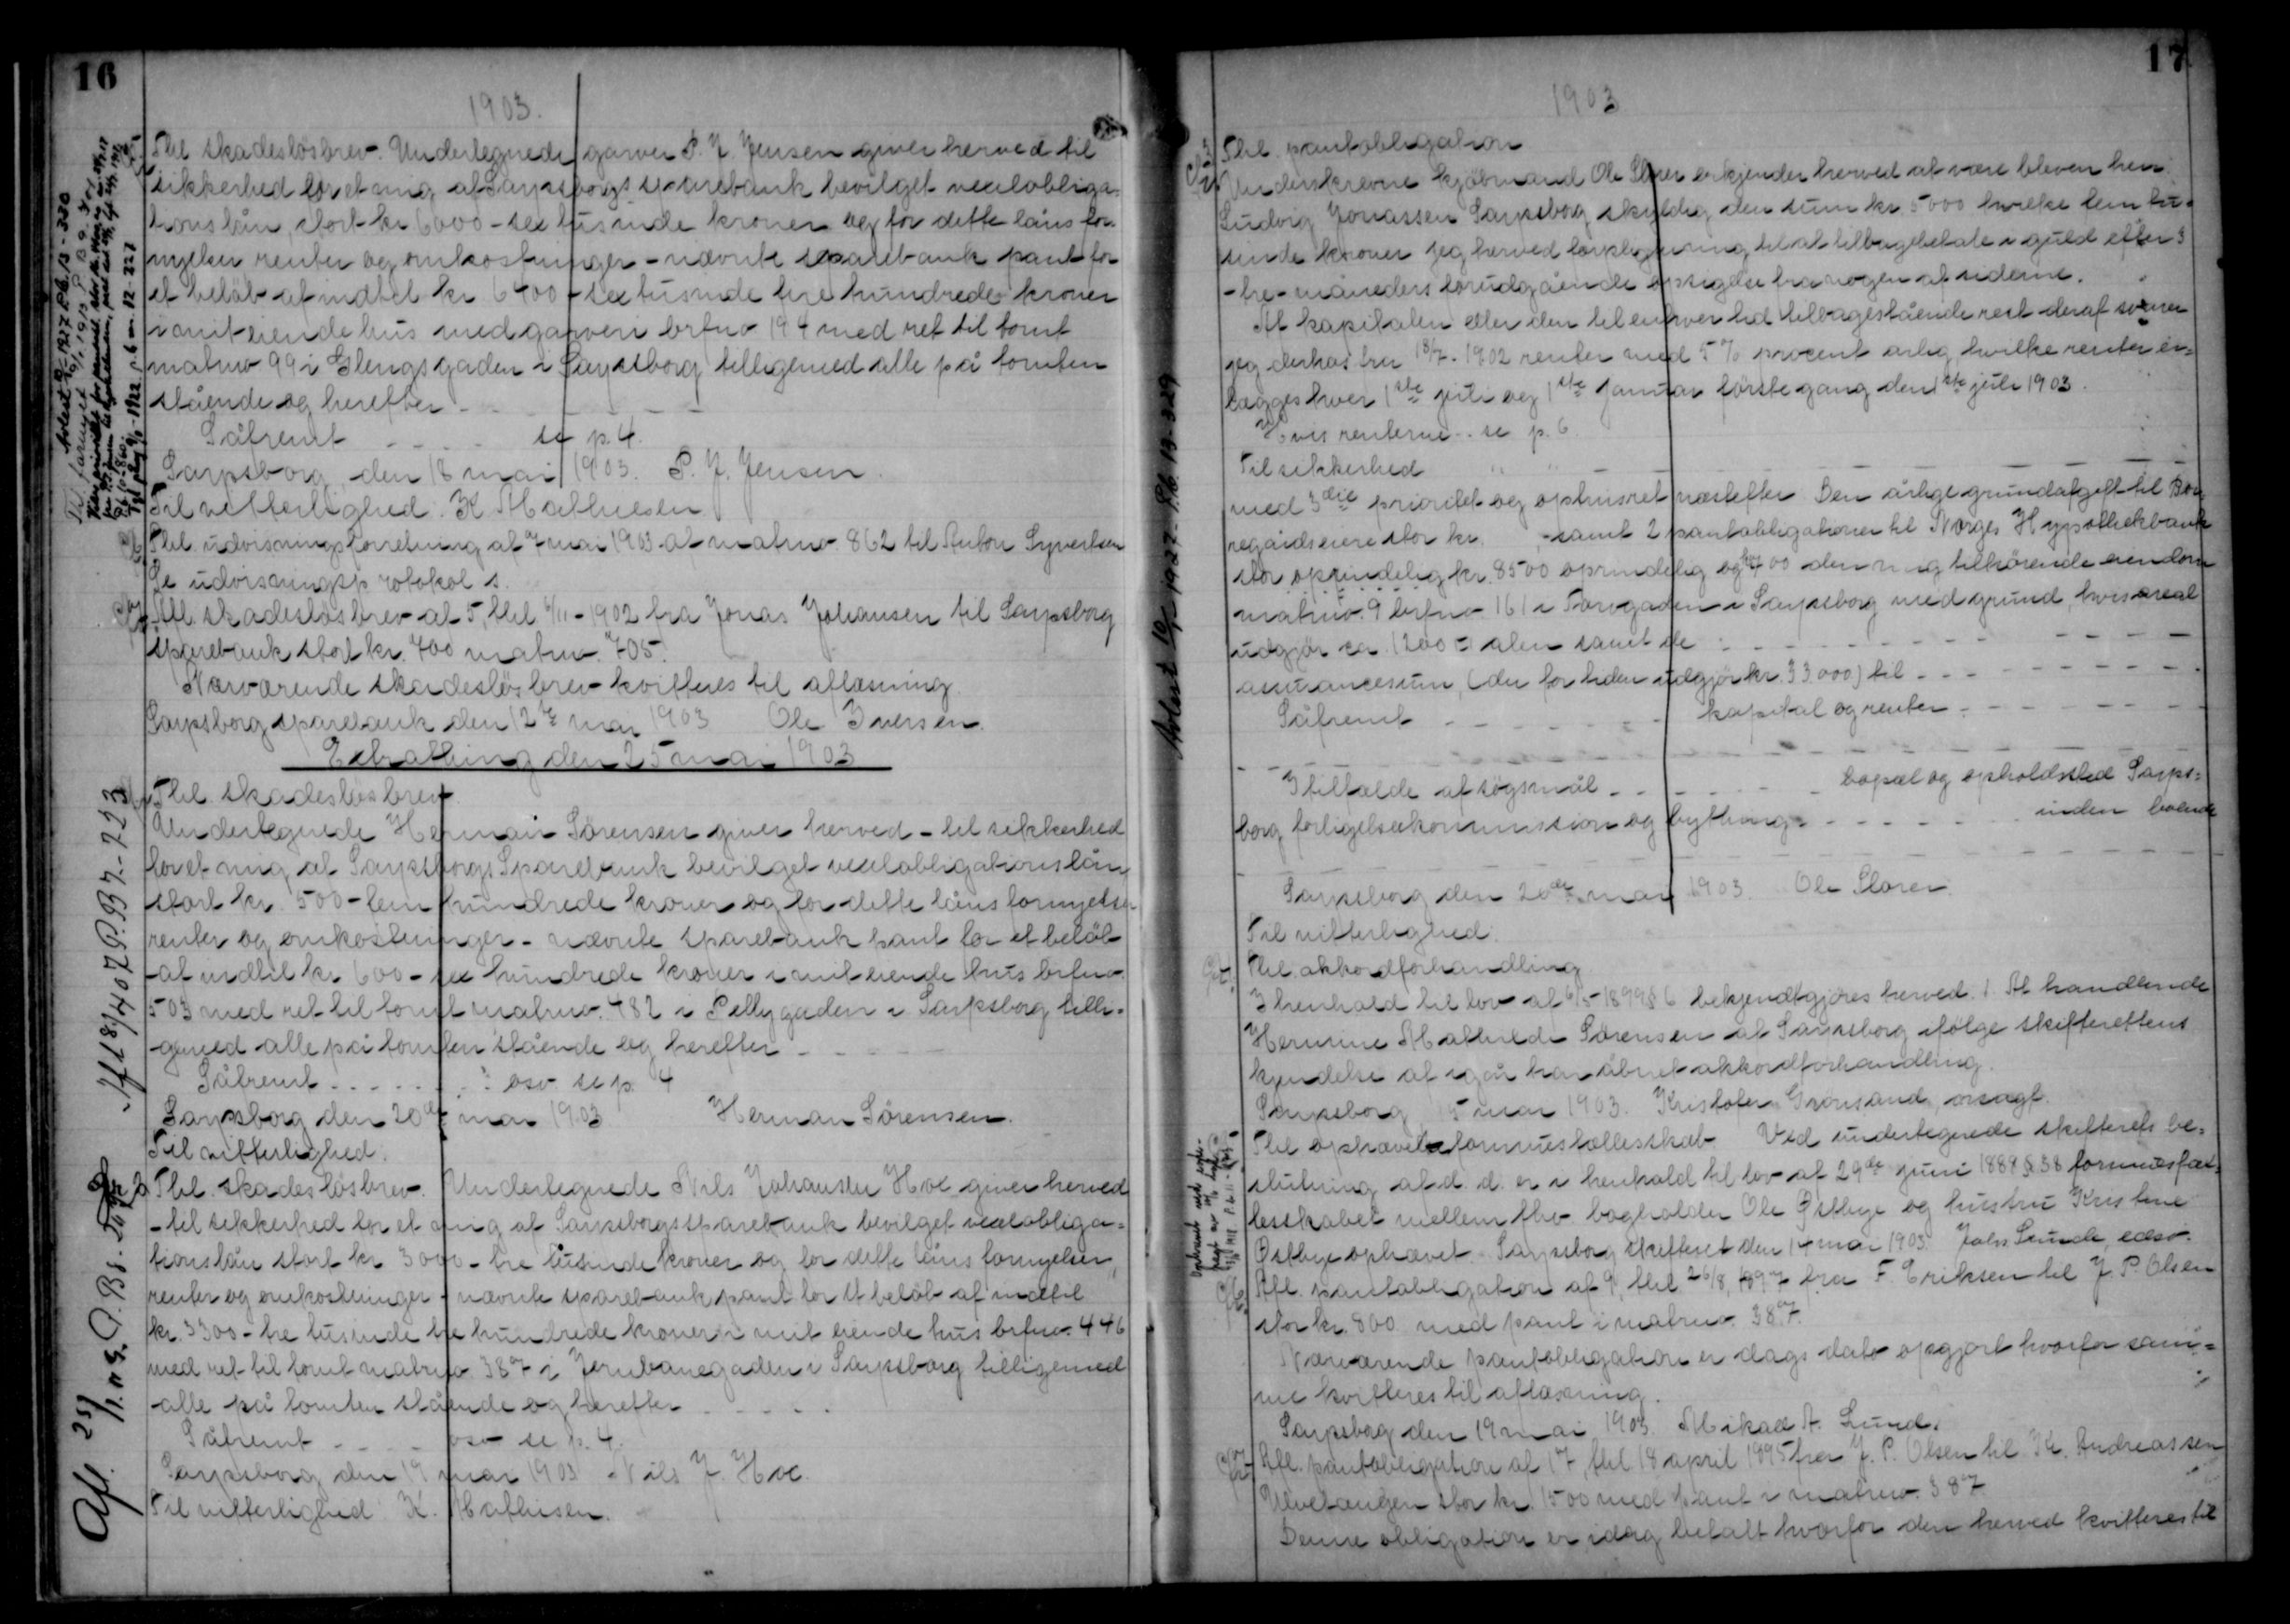 16
1903.
Thl. skadesløsbrev. Undertegnede garver P. J. Jensen giver herved til
sikkerhed for et mig af Sarpsborgs sparebank bevilget vexelobliga-
tionslån, stort kr 6000 - sex tusinde kroner og for dette låns for-
nyelser renter og omkostninger - nævnte sparebank pant for
et beløb af indtil kr 6400 - sex tusinde fire hundrede kroner
i mit eiende hus med garveri brfno 194 med ret til tomt
matrno 99 i Glengsgaden i Sarpsborg tilligemed alle på tomten
stående og herefter
Såfremt se p. 4.
Sarpsborg, den 18 mai 1903. P. J. Jensen.
Til vitterlighed: K. Mathiesen
Thl. udvisningsforretning af mai 1903 af matrno. 862 til Anton Syvertsen
Se udvisningsprotokol s.
Afl. skadesløsbrev af 5, thl 6/11-1902 fra Jonas Johansen til Sarpsborg
sparebank stort kr. 700 matrno. 705.
Nærværende skadesløsbrev kvitteres til aflæsning.
Sarpsborg sparebank den 12te mai 1903 Ole Iversen.
Extrathing den 25 mai 1903
Thl. skadesløsbrev.
Undertegnede Herman Sørensen giver herved - til sikkerhed
for et mig af Sarpsborgs Sparebank bevilget vexelobligationslån
stort kr. 500 - fem hundrede kroner og for dette låns fornyelser
renter og omkostninger - nævnte sparebank pant for et beløb
af indtil kr 600 - sex hundrede kroner i mit eiende hus brfno.
503 med ret til tomt matrno. 482 i Pellygaden i Sarpsborg tilli-
gemed alle på tomten stående og herefter
Såfremt osv se p. 4
Sarpsborg den 20de mai 1903 Herman Sørensen.
Til vitterlighed.
Thl. skadesløsbrev. Undertegnede Nils Johansen Hoe giver herved
- til sikkerhed for et mig af Sarpsborgs sparebank bevilget vexelobliga-
tionslån stort kr 3000 - tre tusinde kroner og for dette låns fornyelser,
renter og omkostninger - nævnte sparebank pant for et beløb af indtil
kr. 3300 - tre tusinde tre hundrede kroner i mit eiende hus brfno. 446
med ret til tomt matrno 387 i Jernbanegaden i Sarpsborg tilligemed
alle på tomten stående og herefter
Såfremt osv se p. 4.
Sarpsborg den 19 mai 1903 Nils J. Hoe.
Til vitterlighed K. Mathisen.
17
1903
Thl. pantobligation
Underskrevne kjøbmand Ole Storer erkjender herved at være bleven herr
Ludvig Jonassen Sarpsborg skyldig den sum kr. 5000 hvilke fem tu-
sinde kroner jeg herved forpligter mig til at tilbagebetale i guld efter 3
- tre - måneders forudgående opsigelse fra nogen af siderne.
Af kapitalen eller den til enhver tid tilbagestående rest deraf svarer
jeg derhos fra 18/7-1902 renter med 5 % procent årlig hvilke renter er-
lægges hver 1ste juli og 1ste januar første gang den 1ste juli 1903.
Hvis renterne.. se p. 6
Til sikkerhed
med 3die prioritet og opthusret næstefter Den årlige grundafgift til Bor-
regaardseiere stor kr. , samt 2 pantobligationer til Norges Hypothekbank
stor oprindelig kr. 8500 oprindelig og 700 den mig tilhørende eiendom
matrno. 9 brfno 161 i Torvgaden i Sarpsborg med grund, hvis areal
udgjør ca 1200 □ alen samt de
assurancesum, (der for tiden udgjør kr. 33.000) til
Såfremt kapital og renter
I tilfælde af søgsmål bopæl og opholdssted Sarps-
borg forligelseskommission og bything inden boende
Sarpsborg den 20de mai 1903. Ole Storer
Til vitterlighed.
Thl. akkordforhandling
I henhold til lov af 6/5-1899 § 6 bekjendtgjøres herved. 1. At handlende
Hermine Mathilde Sørensen af Sarpsborg ifølge skifterettens
kjendelse af igår har åbnet akkordforhandling.
Sarpsborg 15 mai 1903. Kristofer Grønsand, oragt.
Thl ophævet formuesfællesskab Ved undertegnede skifterets be-
slutning af d. d. er i henhold til lov af 29de juni 1888 § 38 formuesfæl-
lesskabet mellem fhv. bogholder Ole Østbye og hustru Kristine
Østbye ophævet. Sarpsborg skifteret den 14 mai 1903. Johs Lunde, edsv.
Afl. pantobligation af 9, thl 26/8, 1897 fra F. Eriksen til J. P. Olsen
stor kr. 800 med pant i matrno. 387.
Nærværende pantobligation er dags dato opgjort hvorfor sam-
me kvitteres til aflæsning.
Sarpsborg den 19 mai 1903. Mikael A. Lund.
Afl. pantobligation af 17, thl 18 april 1895 fra J. P. Olsen til K. Andreassen
Ulvetangen stor kr. 1500 med pant i matrno. 387
Denne obligation er idag betalt hvorfor den herved kvitteres til